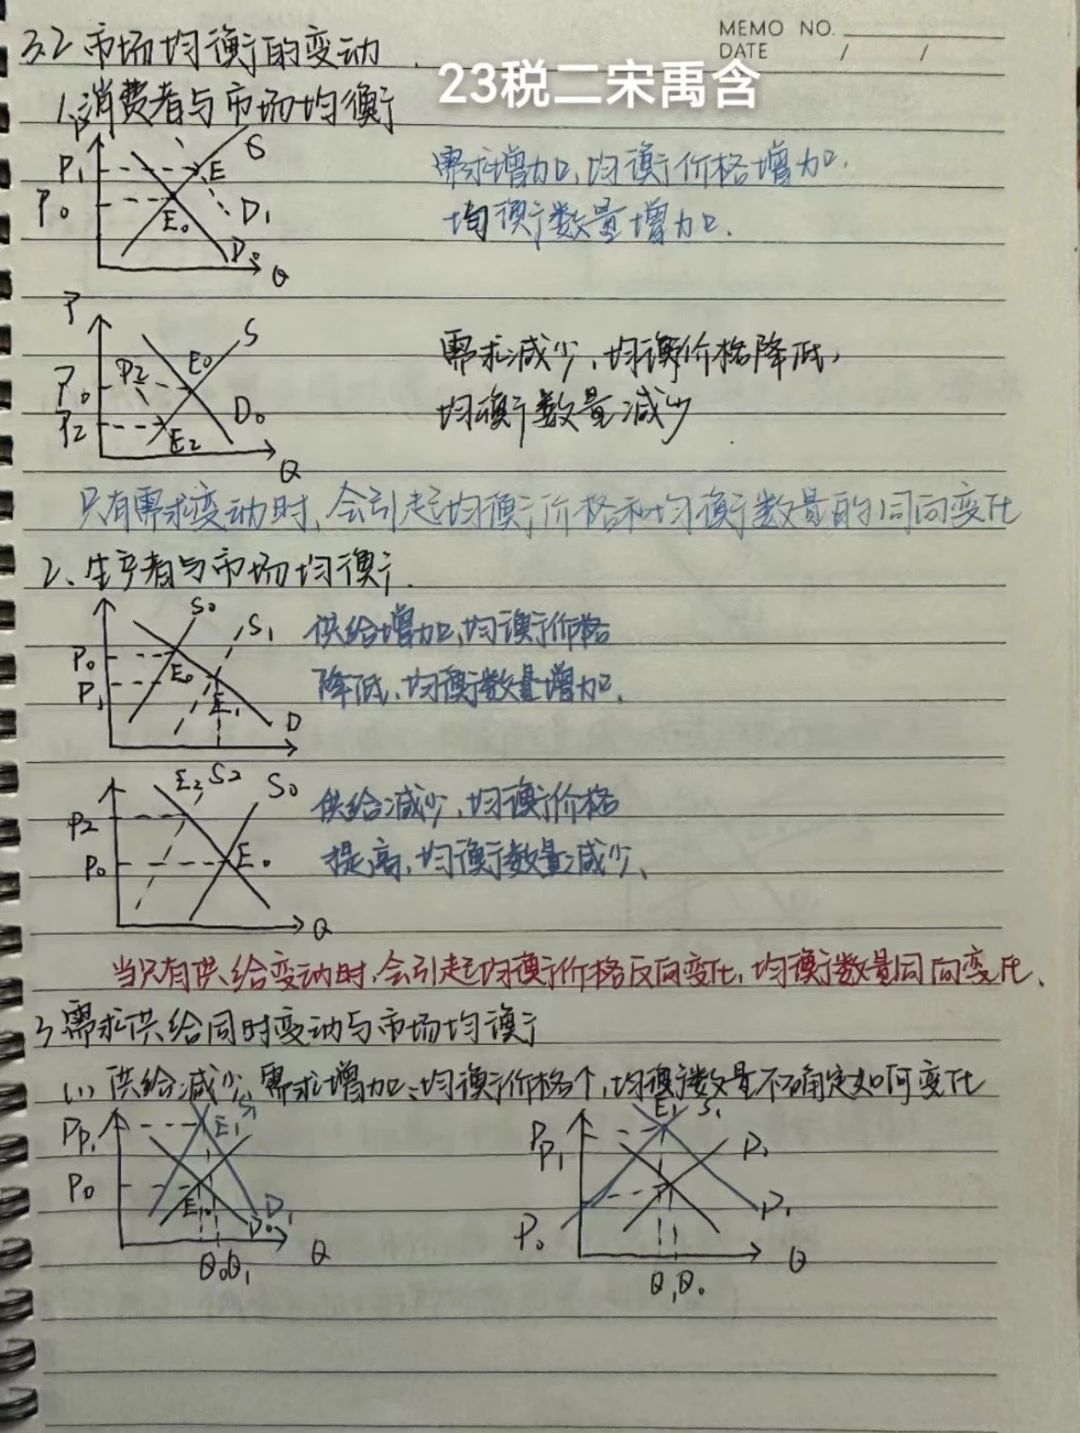 MEMO NO.
DATE / /
3.2 市场均衡的变动
23税二宋禹含
1、消费者与市场均衡
P
P₁ E S
P₀ E₀ D₁
D₀
Q
需求增加,均衡价格增加.
均衡数量增加.
P
P₀ P₂ E₀ S
P₂ E₂ D₀
Q
需求减少,均衡价格降低,
均衡数量减少
只有需求变动时,会引起均衡价格和均衡数量的同向变化
2、生产者与市场均衡.
S₀ S₁
P₀ E₀
P₁ E₁ D
供给增加,均衡价格
降低,均衡数量增加.
E₂ S₂ S₀
P₂
P₀ E₀
Q
供给减少,均衡价格
提高,均衡数量减少、
当只有供给变动时,会引起均衡价格反向变化,均衡数量同向变化、
3、需求供给同时变动与市场均衡
(1)供给减少,需求增加:均衡价格个,均衡数量不确定如何变化
P P₁ E₁ S₁
P₀ E₀ D₁
D₀
Q₀ Q₁ Q
P P₁ E₁ S₁ D₁
P₀ D₁
Q₁ Q₀ Q